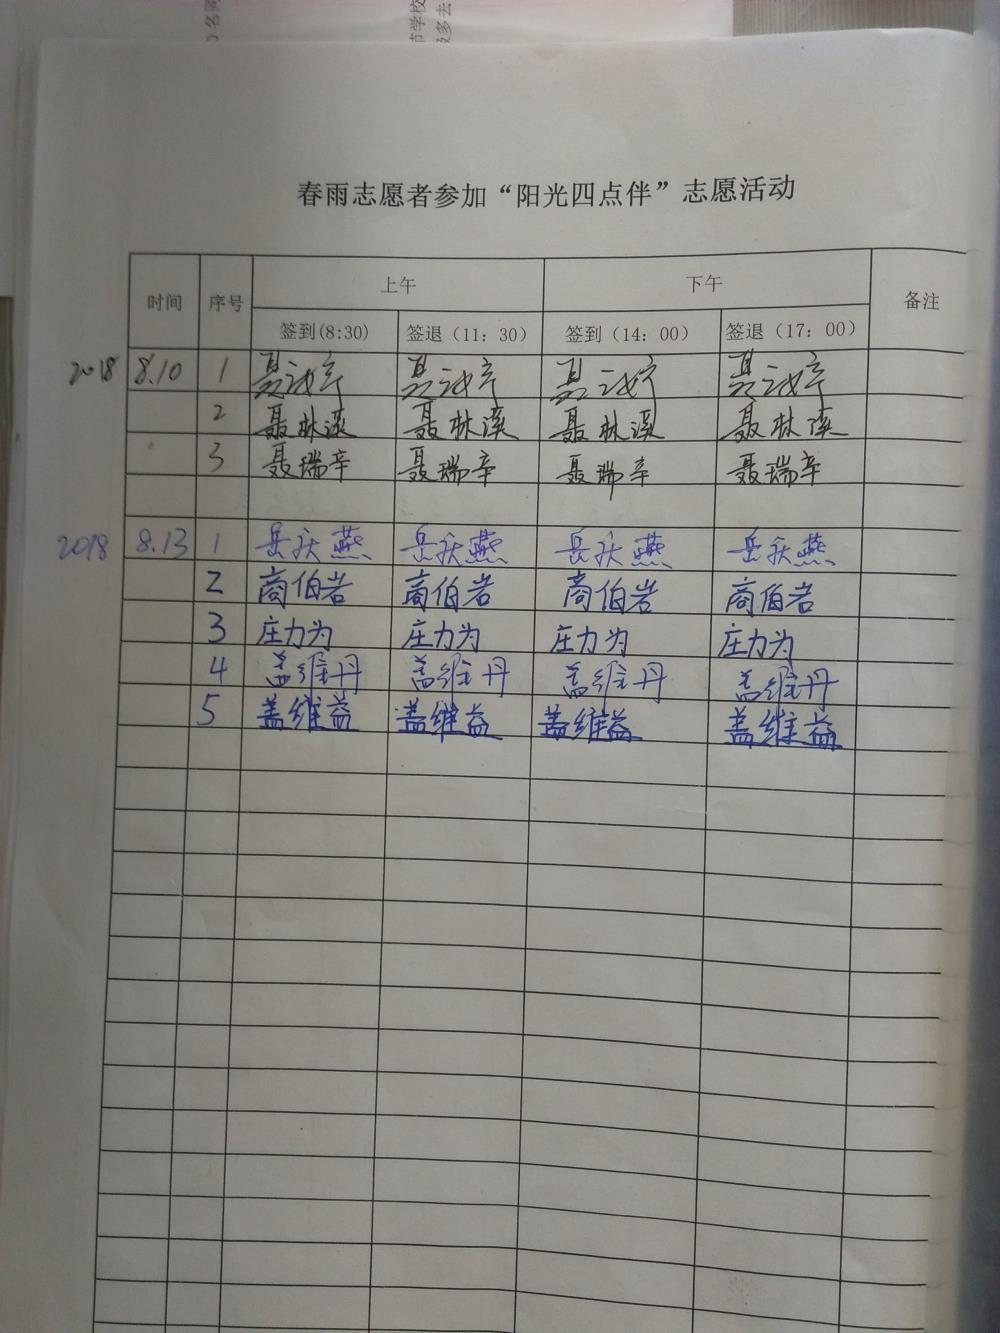 名同
节学校
多去
春雨志愿者参加“阳光四点伴”志愿活动
时间 序号 上午 下午 备注
签到(8:30) 签退（11：30） 签到（14：00） 签退（17：00）
2018 8.10 1
2 聂林溪 聂林溪 聂林溪 聂林溪
3 聂瑞辛 聂瑞辛 聂瑞辛 聂瑞辛
2018 8.13 1 岳秋燕 岳秋燕 岳秋燕 岳秋燕
2 商伯岩 商伯岩 商伯岩 商伯岩
3 庄力为 庄力为 庄力为 庄力为
4 盖维丹 盖维丹 盖维丹 盖维丹
5 盖维益 盖维益 盖维益 盖维益